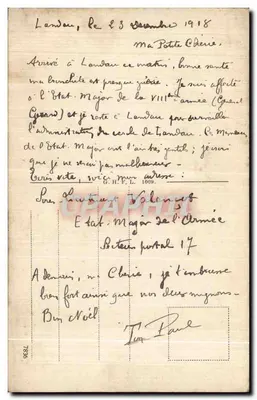 Landau, le 23 decembre 1918
Ma Petite Cherie.
Arrivé à Landau ce matin, bonne santé
ma bronchite est presque guérie. Je suis affecté
à l'Etat Major de la VIIIème armée (General
Gerard) et je reste à Landau pour surveiller
l'administration du cercle de Landau. Ce Monsieur
de l'Etat Major a l'air très gentil; je crois
que je ne serai pas malheureux.
Très vite, voici mon adresse:
G. H. F. L. 1609.
Sous
Etat Major de l'Armée
Secteur postal 17
A demain, ma Cherie, je t'embrasse
bien fort ainsi que nos deux mignons.
Bon Noël
Ton Paul
7836
CPAPHIL